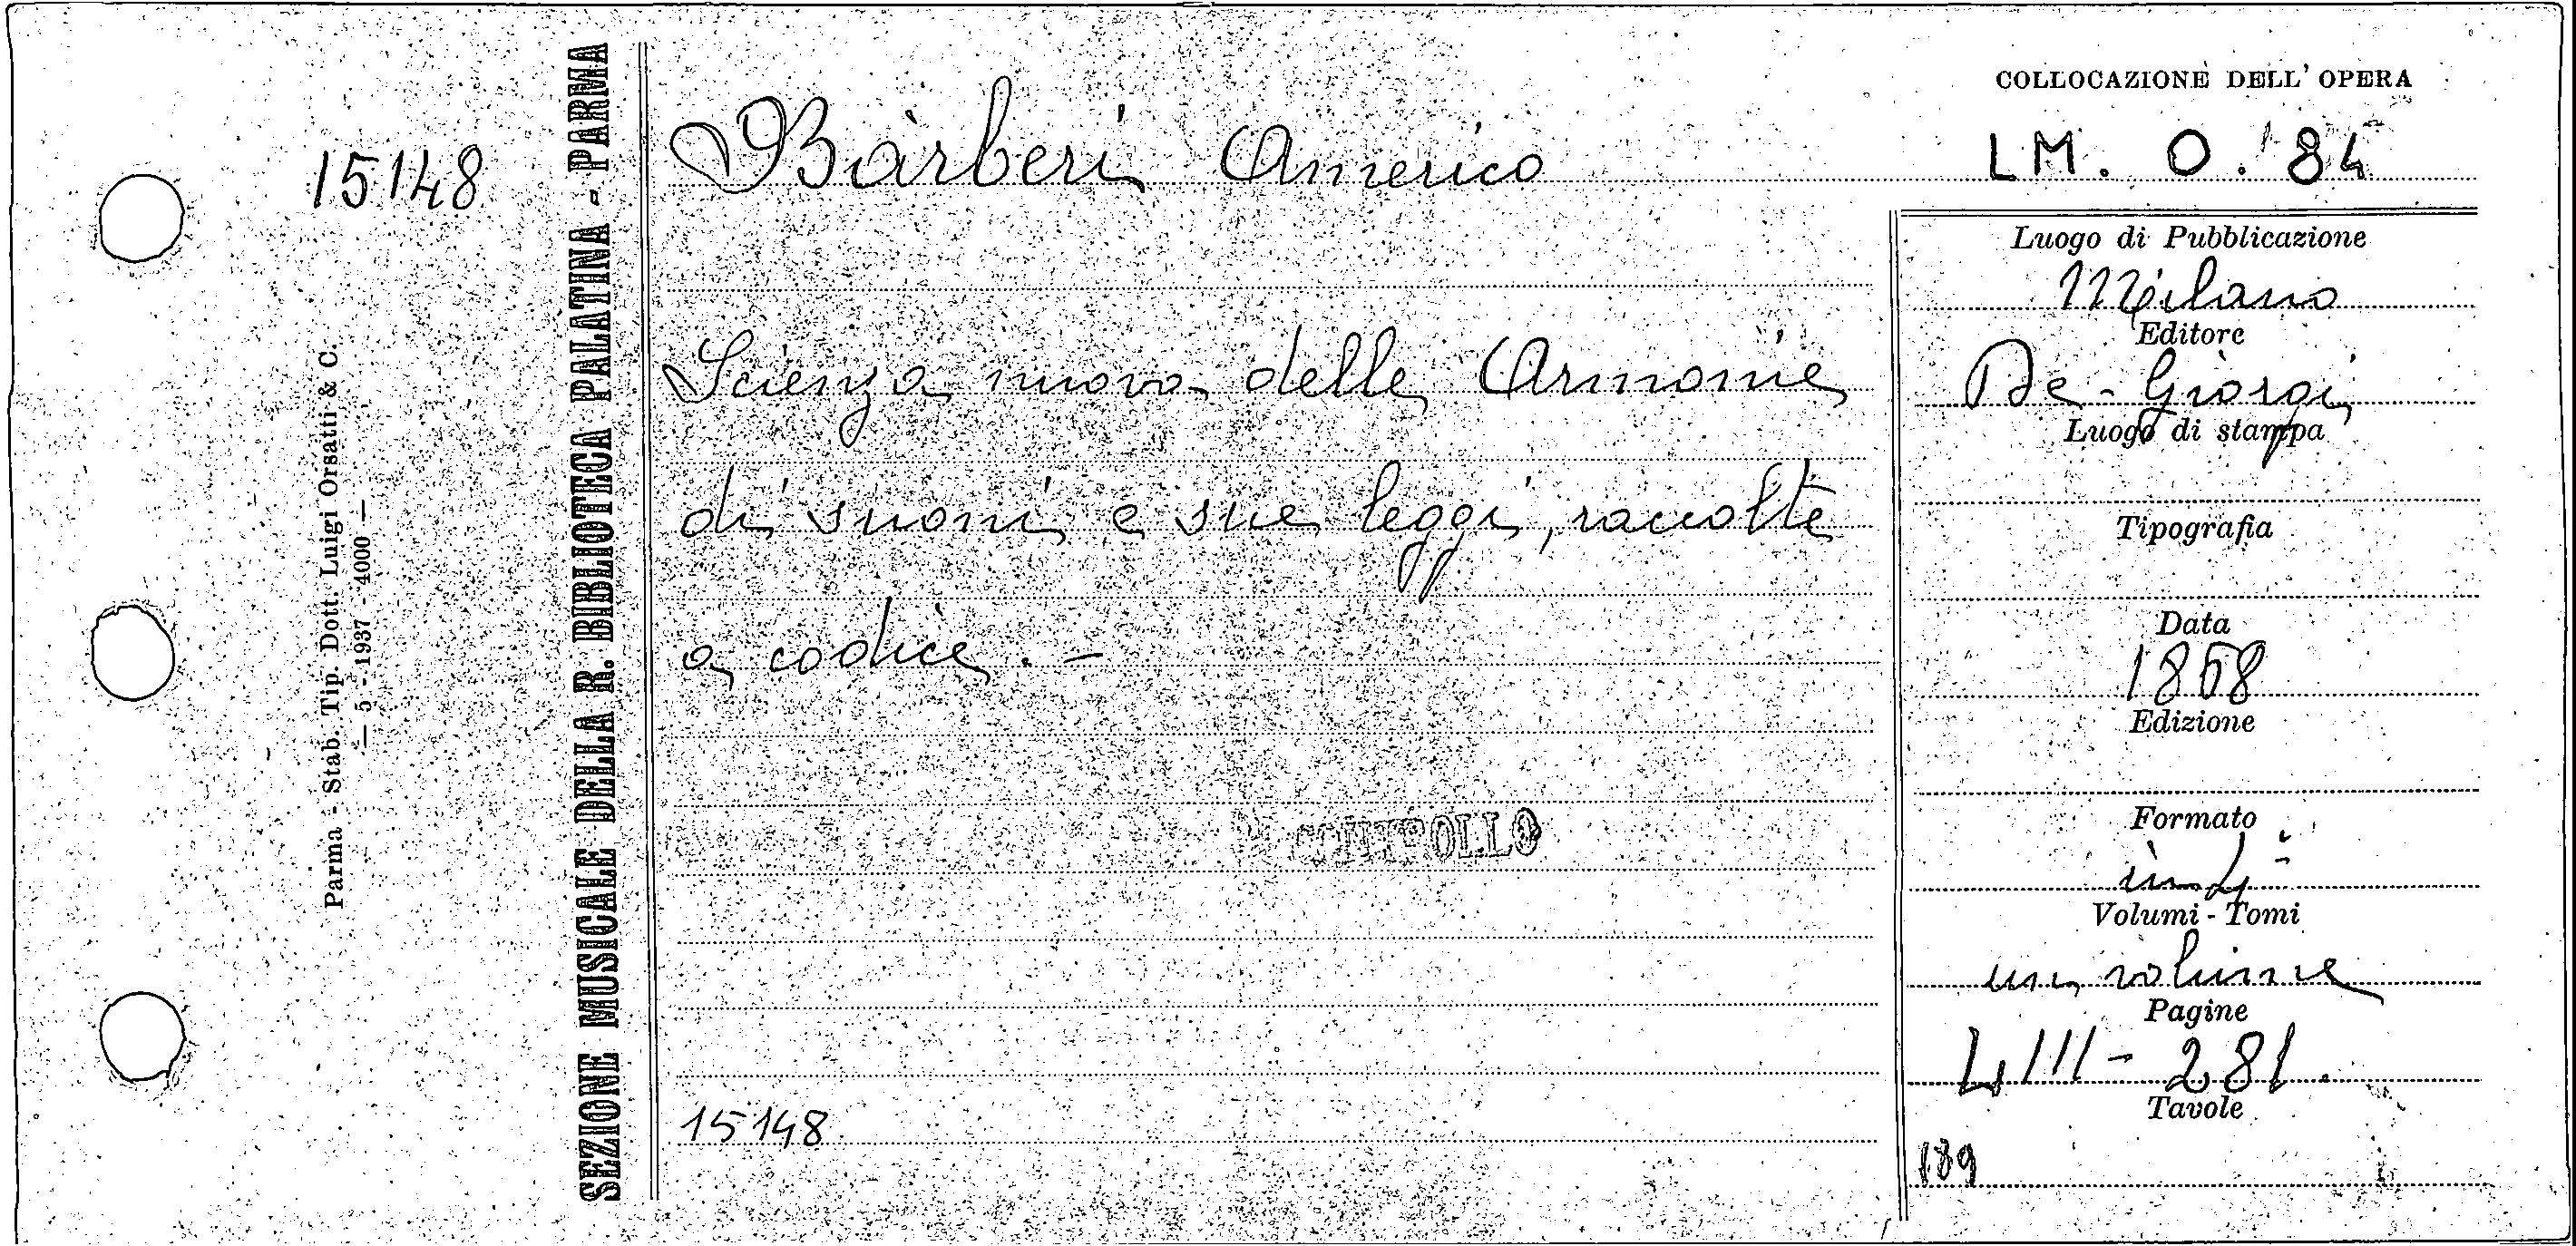 15148
Parma - Stab. Tip. Dott. Luigi Orsatti & C.
— 5 - 1937 - 4000 —
SEZIONE MUSICALE DELLA R. BIBLIOTECA PALATINA - PARMA
Barberi Americo
Scienza nuova delle Armonie
di suoni e sue leggi, raccolte
a codice. -
CONTROLLO
15148
COLLOCAZIONE DELL'OPERA
LM. O. 84
Luogo di Pubblicazione
Milano
Editore
De-Giorgi
Luogo di stampa
Tipografia
Data
1868
Edizione
Formato
in 4°
Volumi - Tomi
un volume
Pagine
LIII - 281.
Tavole
189